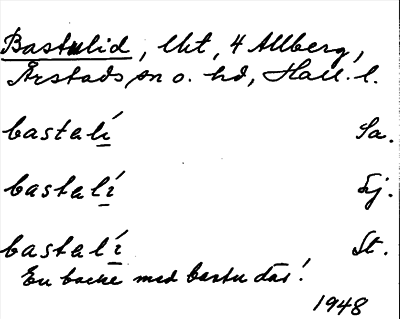 Bastulid, lht, 4 Allberg,
Årstads sn o. hd, Hall. l.
bastalí Sa.
bastalí Ej.
bastalí St.
En backe med bastu där!
1948